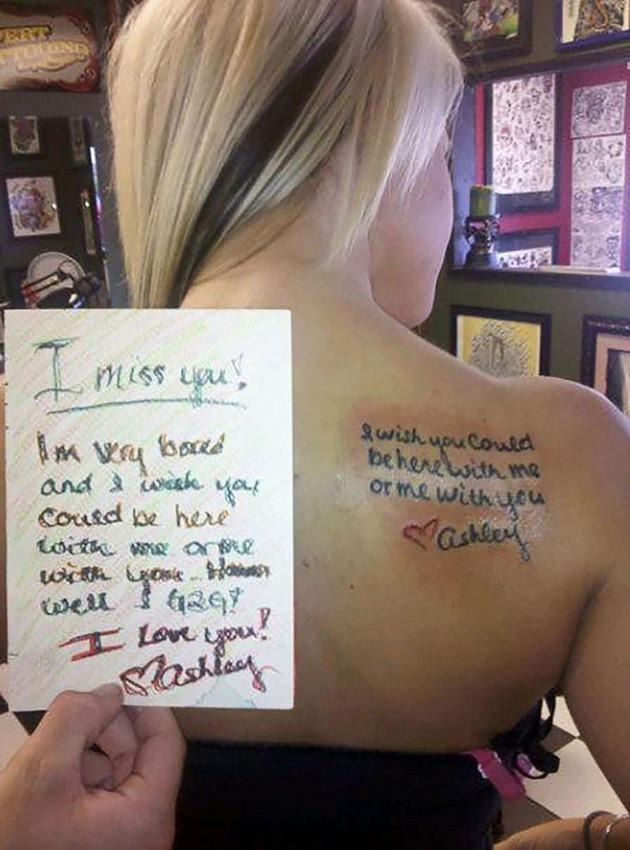 I miss you!
Im very bored
and I wish you
could be here
with me or me
with you..
well I G2G!
I Love you!
Ashley
I wish you could
be here with me
or me with you
Ashley